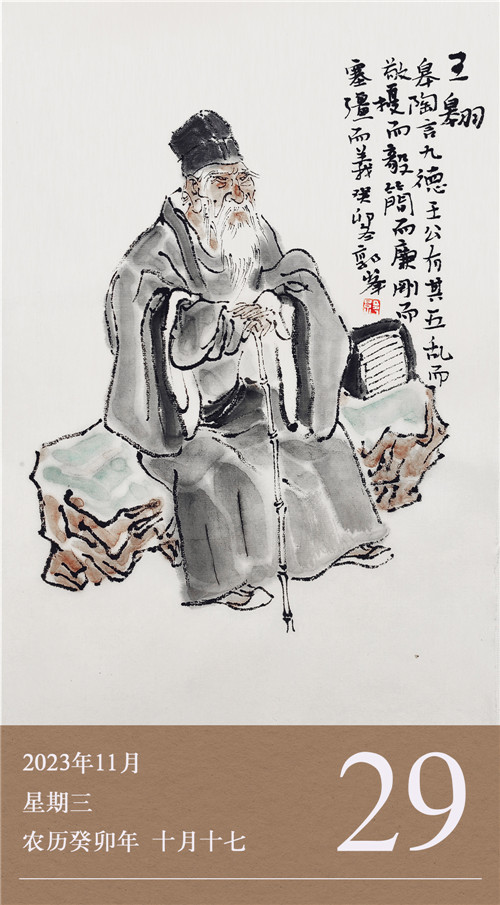 王翱
皋陶言九德王公有其五乱而
敬擾而毅簡而廉剛而
塞彊而義癸卯冬郭峰
2023年11月
星期三
农历癸卯年 十月十七
29